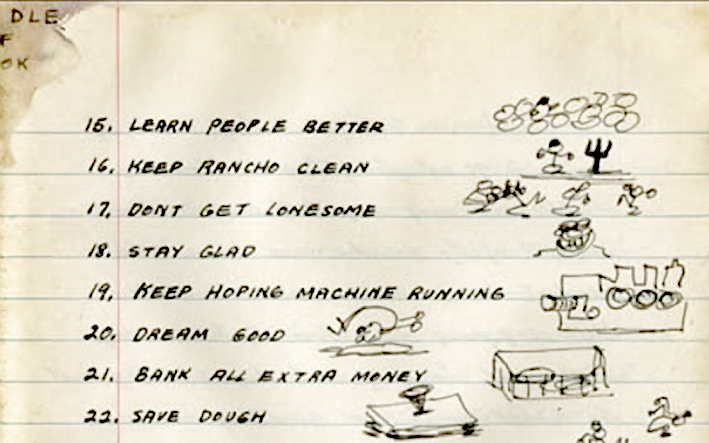 DLE
F
OK
15. LEARN PEOPLE BETTER
16. KEEP RANCHO CLEAN
17. DONT GET LONESOME
18. STAY GLAD
19. KEEP HOPING MACHINE RUNNING
20. DREAM GOOD
21. BANK ALL EXTRA MONEY
22. SAVE DOUGH